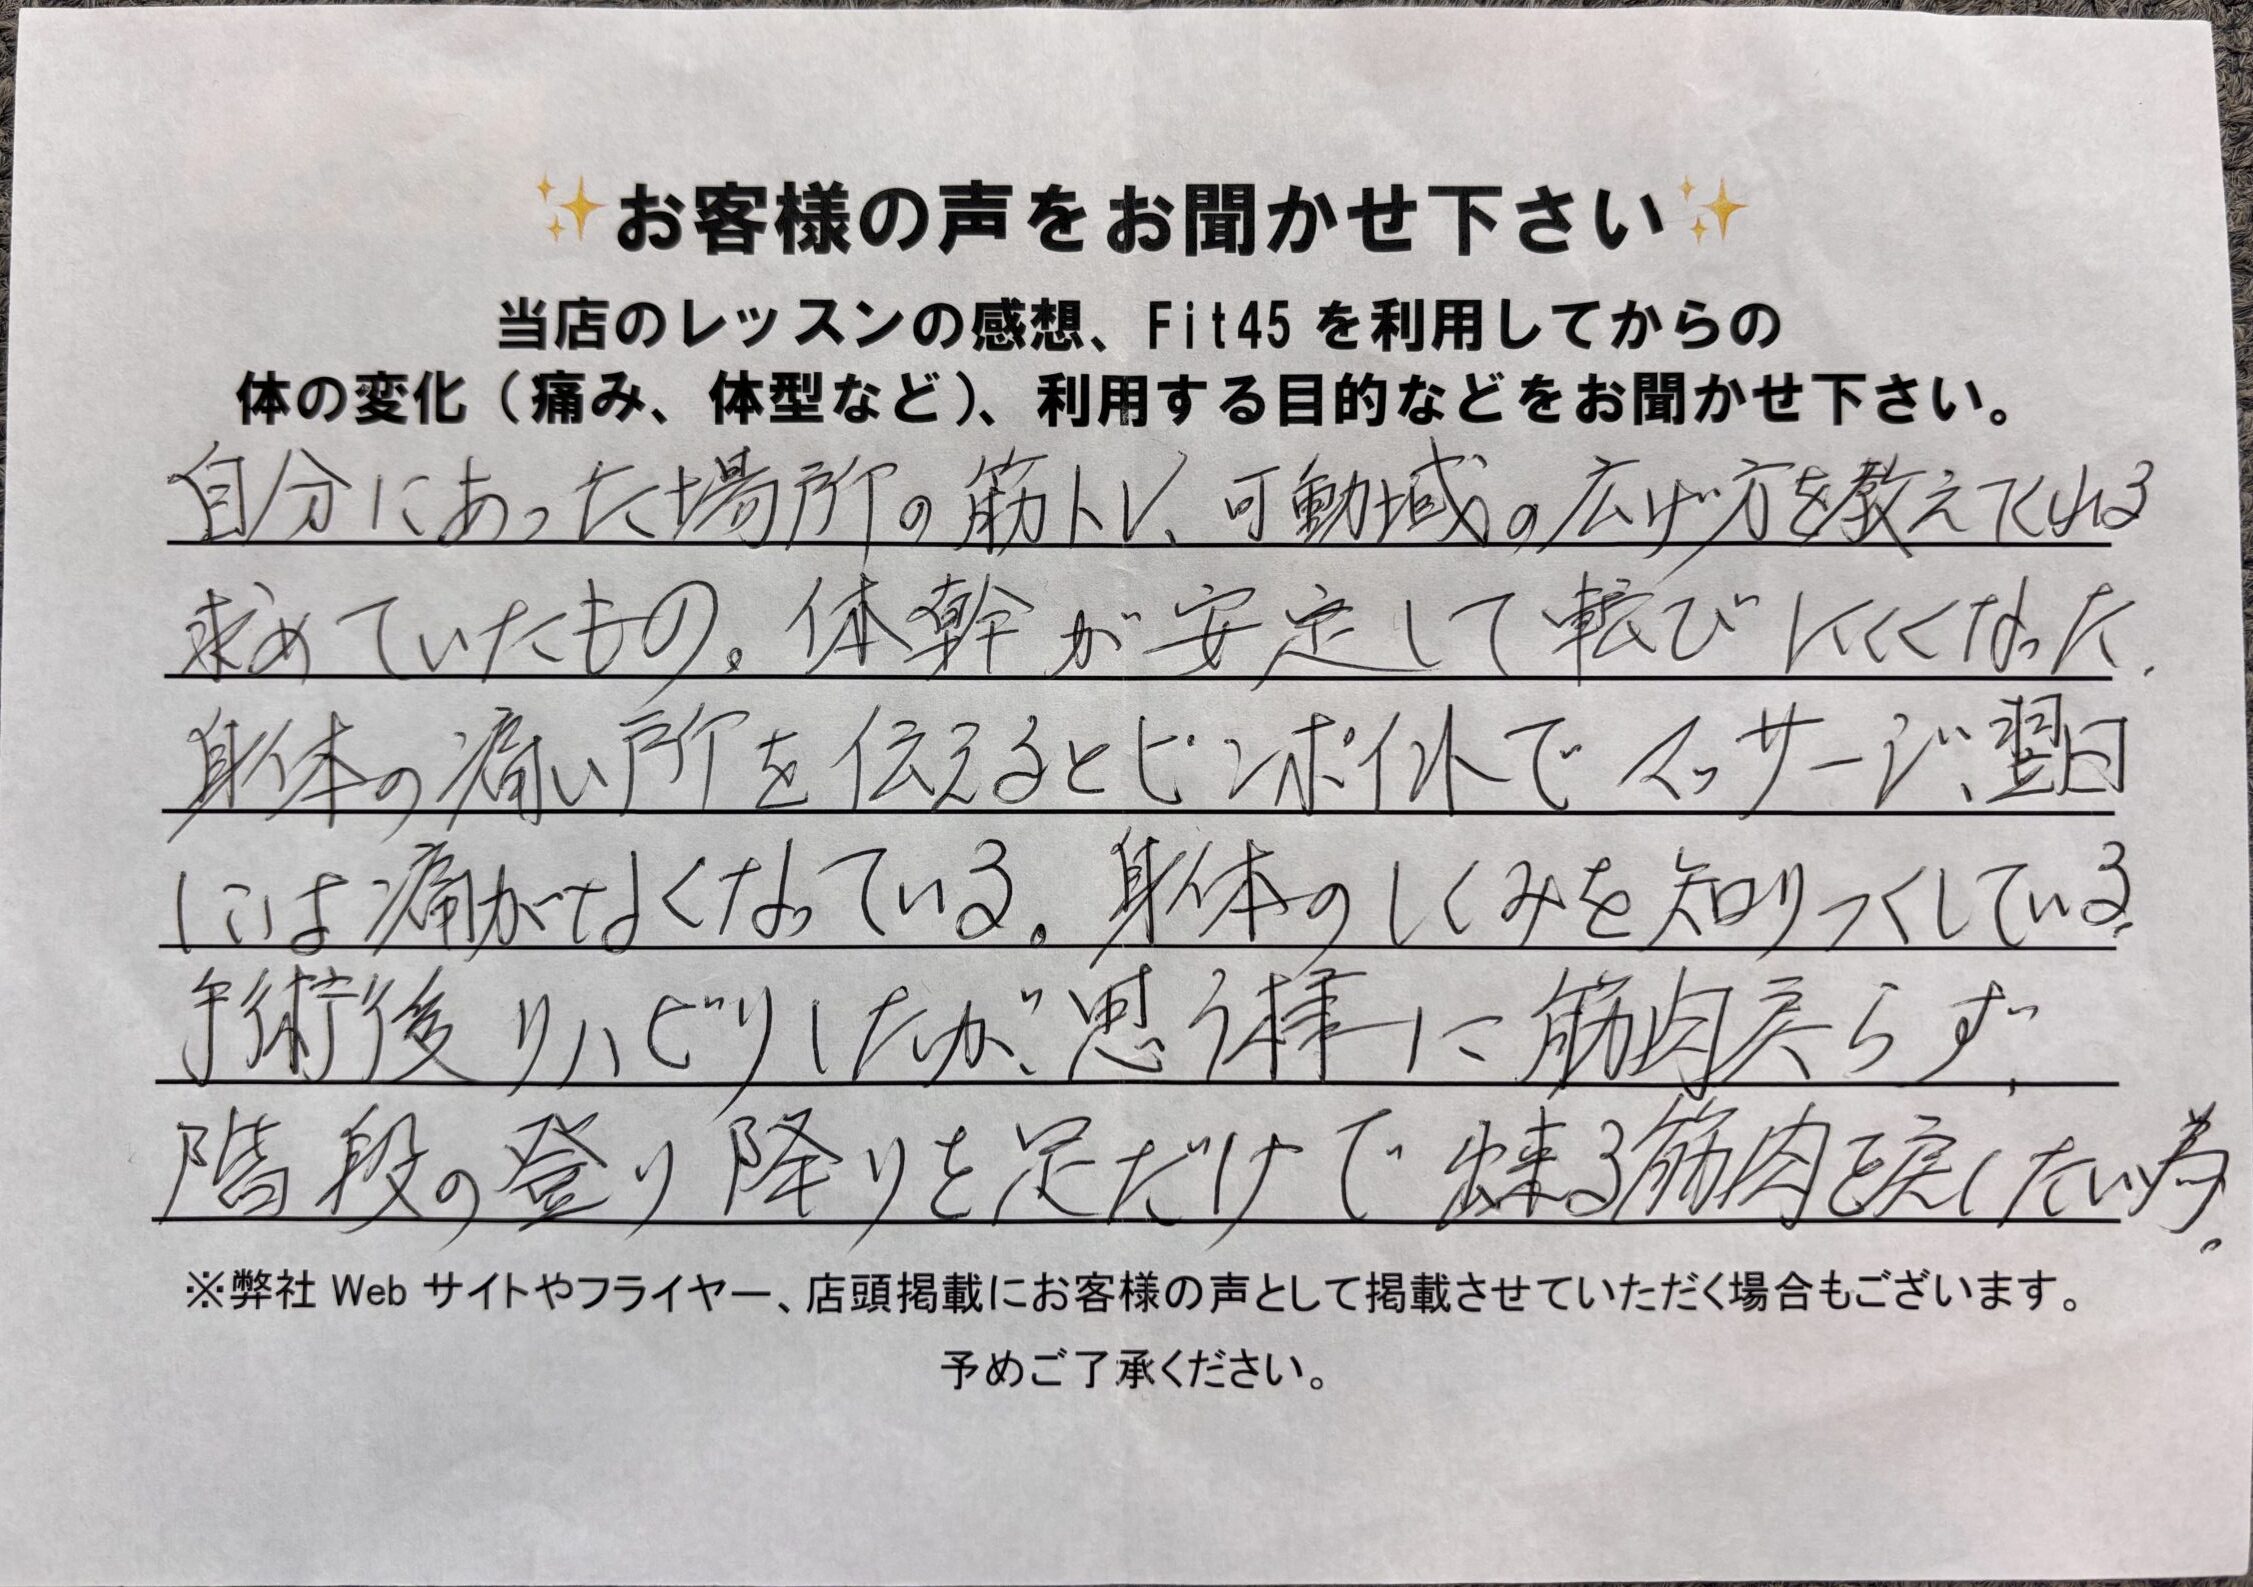 ✨お客様の声をお聞かせ下さい✨
当店のレッスンの感想、Fit45 を利用してからの
体の変化（痛み、体型など）、利用する目的などをお聞かせ下さい。
自分にあった場所の筋トレ、可動域の広げ方を教えてくれる
求めていたもの。体幹が安定して転びにくくなった.
身体の痛い所を伝えるとピンポイントでマッサージ、翌日
には痛がなくなっている。身体のしくみを知りつくしている。
手術後リハビリしたが、思う様に筋肉戻らず、
階段の登り降りを足だけで出来る筋肉を戻したい為。
※弊社 Web サイトやフライヤー、店頭掲載にお客様の声として掲載させていただく場合もございます。
予めご了承ください。